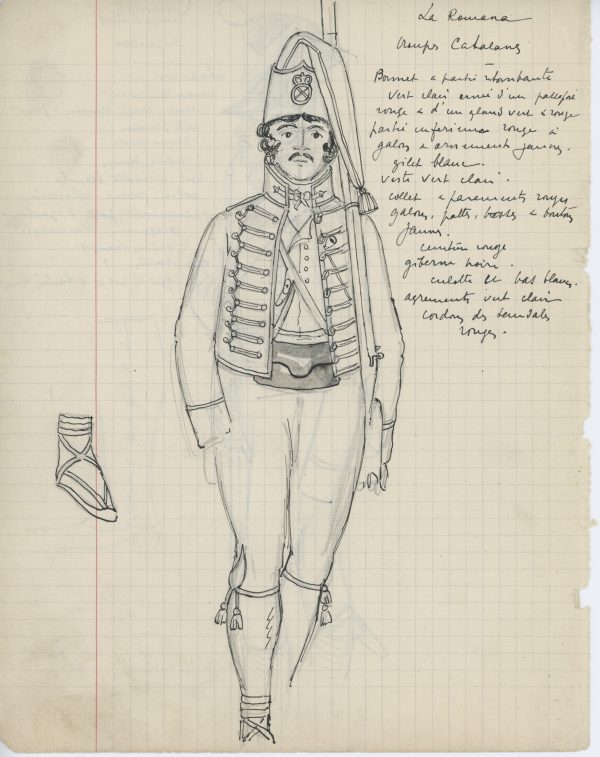 La Romana
Troupes Catalanes
Bonnet a partie retombante
vert clair orné d'un passepoil
rouge & d'un gland vert & rouge
partie inferieure rouge à
galons & ornements jaunes.
gilet blanc.
veste vert clair.
collet & parements rouges
galons, pattes, tresses & boutons
jaunes.
ceinture rouge
giberne noire.
culotte & bas blancs.
agrements vert clair
cordons des sandales
rouges.